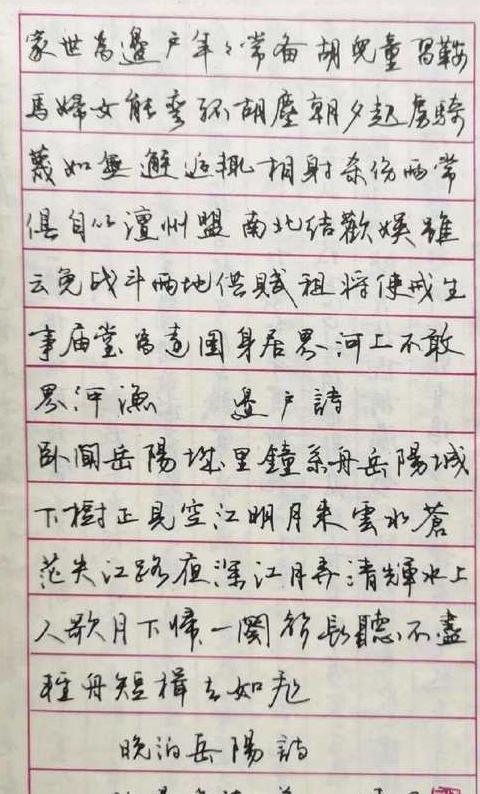 家世為邊户年々常备胡兒童習鞍
馬婦女能弯弧胡塵朝夕起虜騎
蔑如無邂逅輒相射杀伤兩常
俱自从澶州盟南北结歡娱雖
云免战斗兩地供賦租将使戒生
事庙堂為遠图身居界河上不敢
界河漁 邊户詩
卧聞岳陽城里鐘系舟岳陽城
下樹正見空江明月来雲水蒼
茫失江路夜深江月弄清輝水上
人歌月下帰一闋声長聽不盡
轻舟短楫去如飞
晚泊岳陽詩